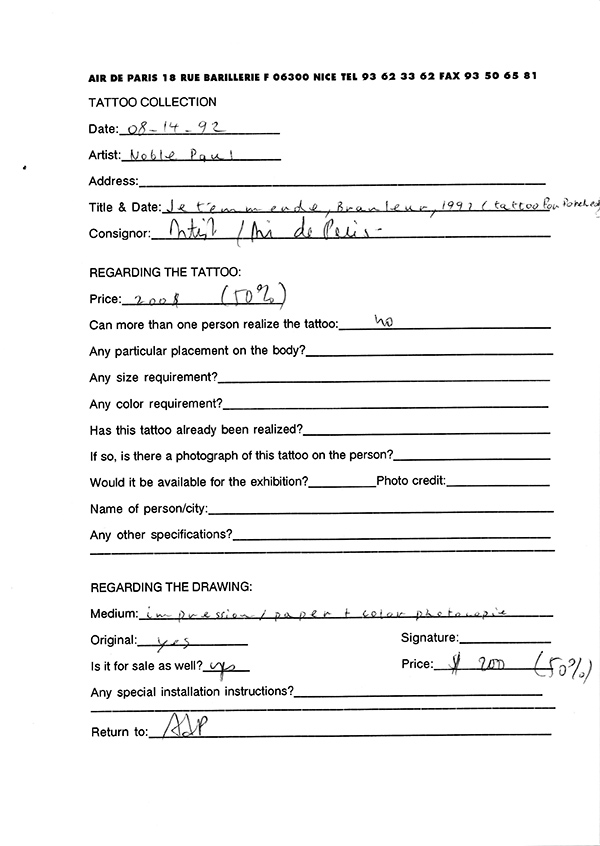 AIR DE PARIS 18 RUE BARILLERIE F 06300 NICE TEL 93 62 33 62 FAX 93 50 65 81
TATTOO COLLECTION
Date: 08-14-92
Artist: Noble Paul
Address:
Title & Date: Je t'emmerde, Branleur, 1992 (tattoo
Consignor: / Air de Paris-
REGARDING THE TATTOO:
Price: 200$ (50%)
Can more than one person realize the tattoo: no
Any particular placement on the body?
Any size requirement?
Any color requirement?
Has this tattoo already been realized?
If so, is there a photograph of this tattoo on the person?
Would it be available for the exhibition? Photo credit:
Name of person/city:
Any other specifications?
REGARDING THE DRAWING:
Medium: impression / paper + color photocopie
Original: yes Signature:
Is it for sale as well? yes Price: $ 200 (50%)
Any special installation instructions?
Return to: AdP